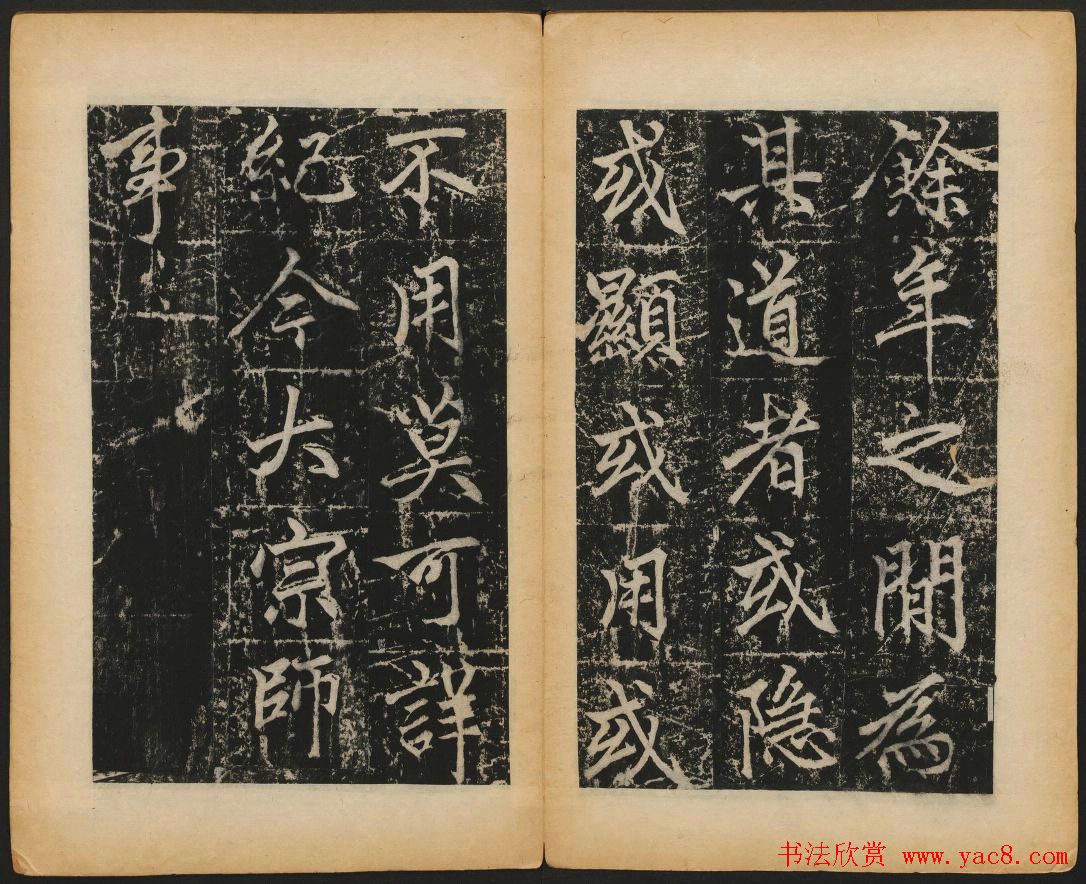 餘年之閒為
其道者或隐
或顯或用或
不用莫可詳
紀今大宗師
事
书法欣赏 www.yac8.com